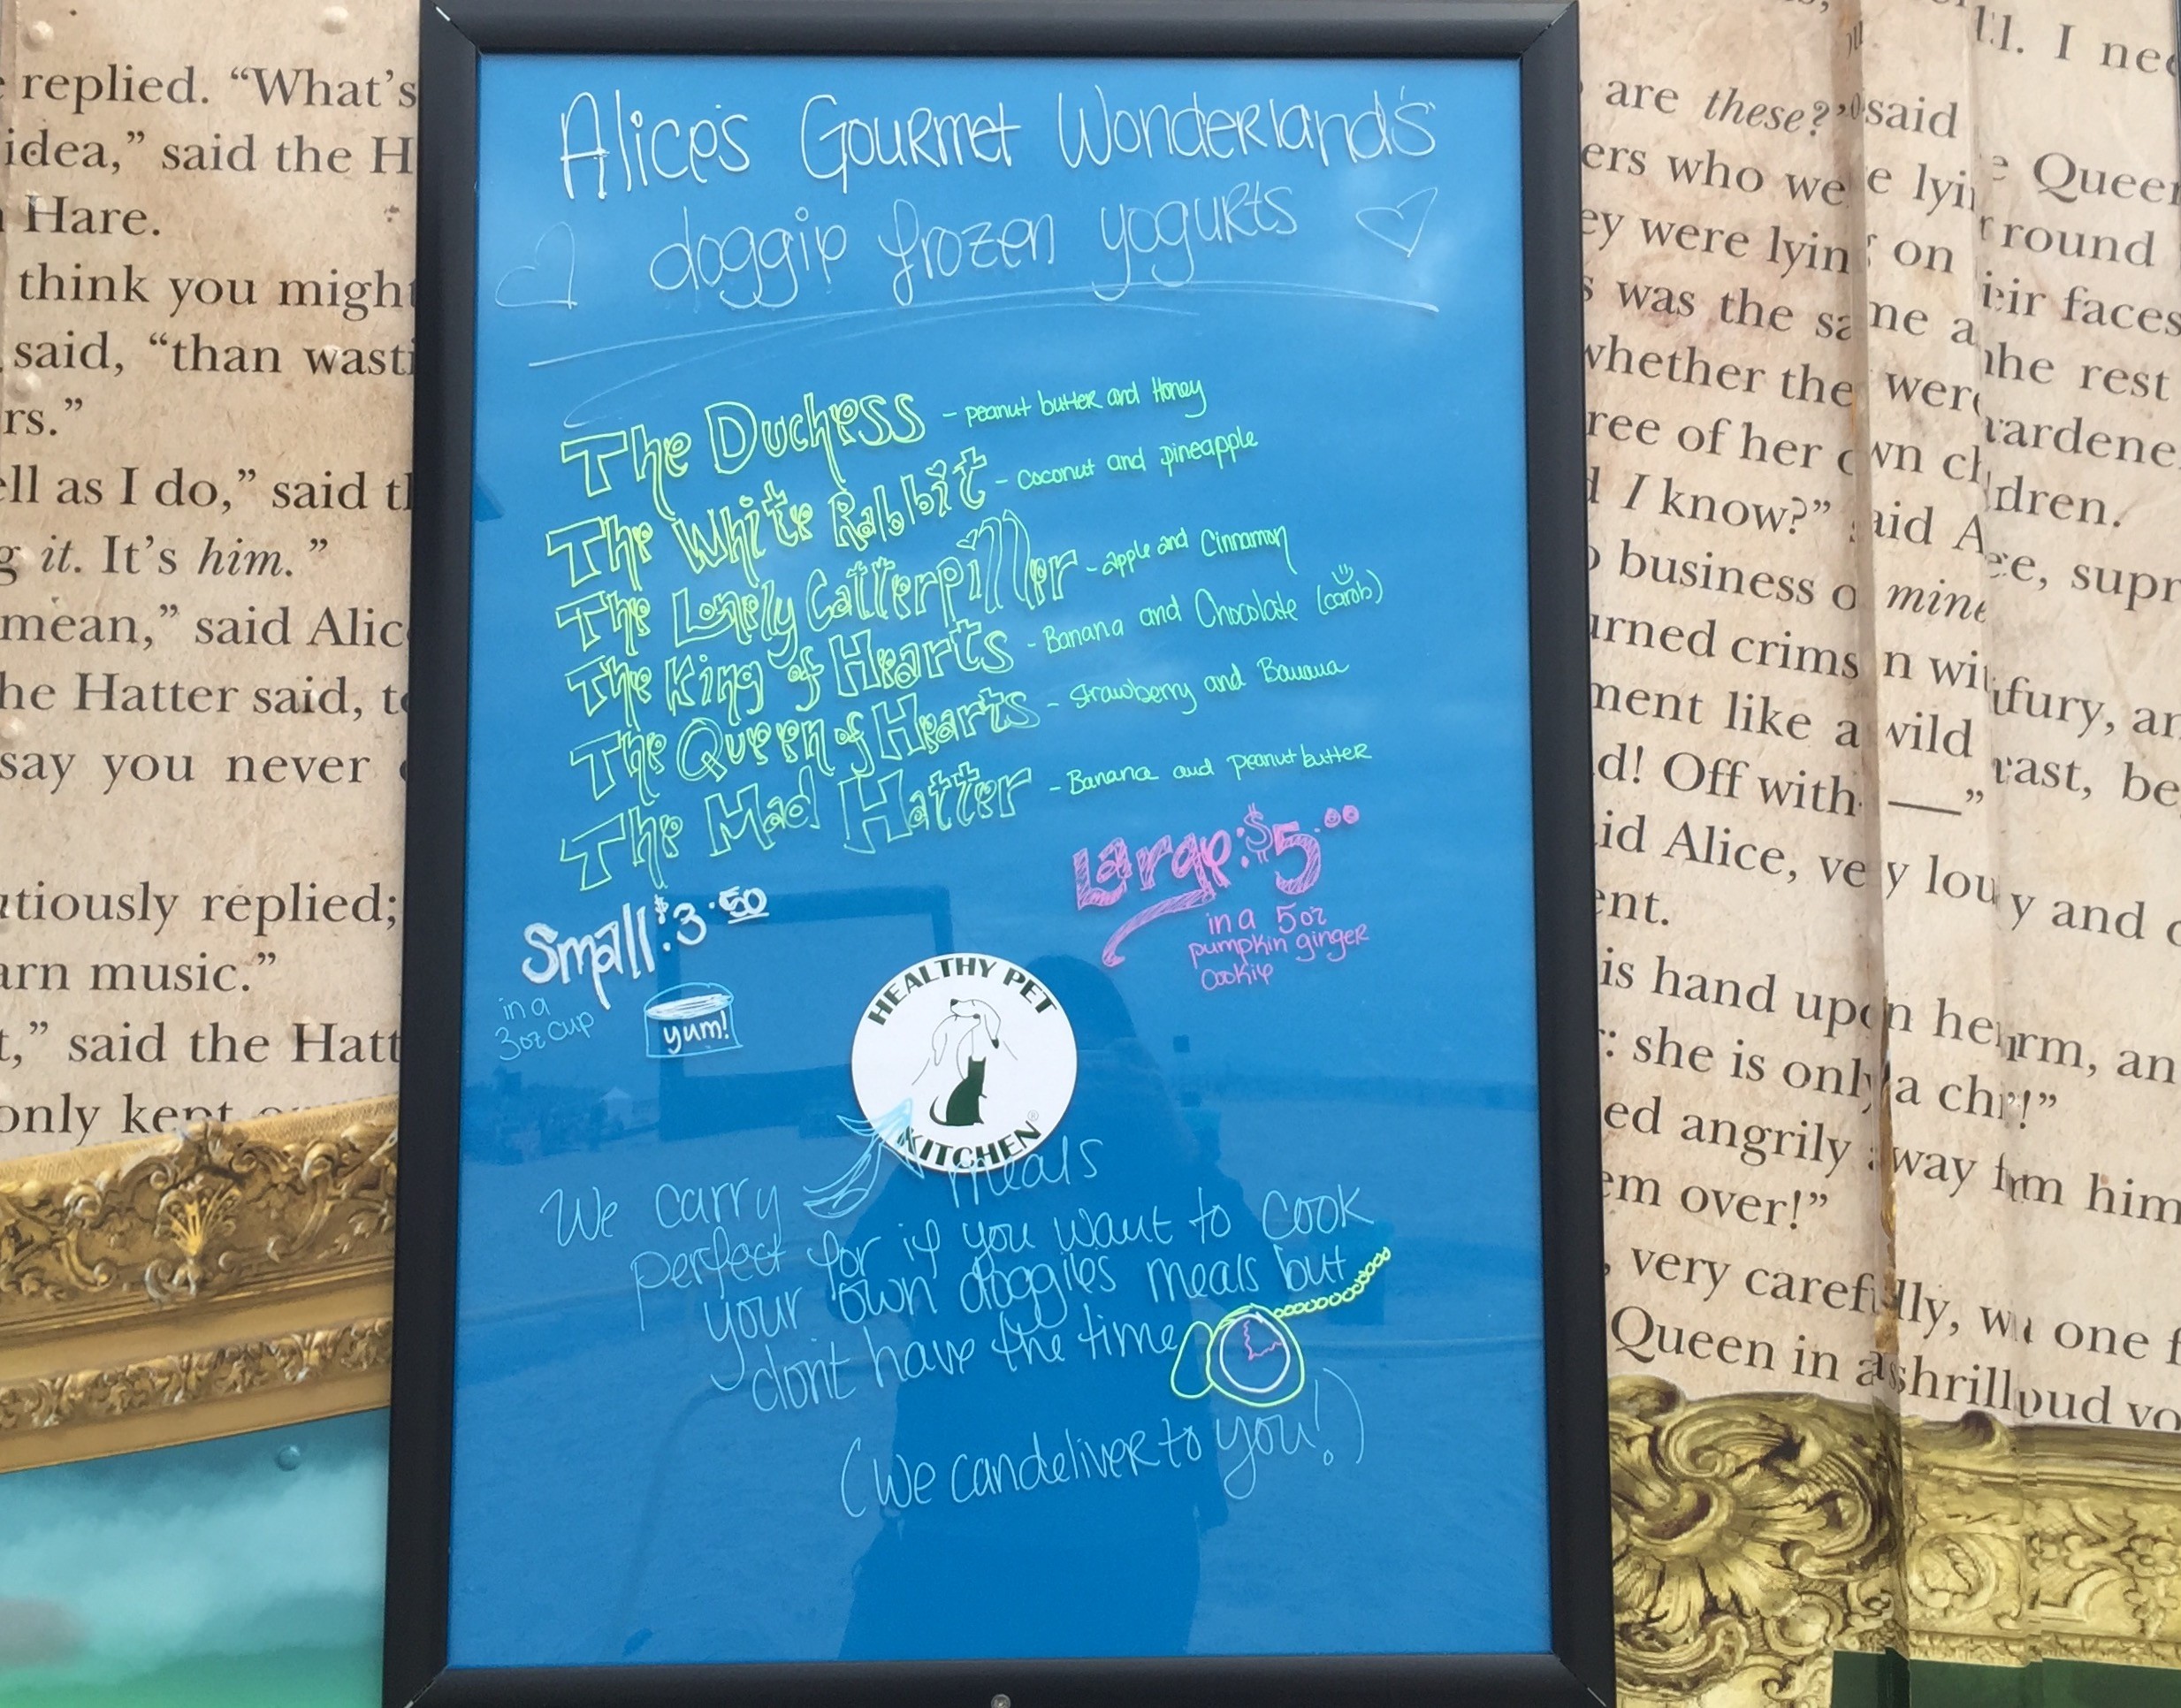 replied. “What’s
idea,” said the H
Hare.
think you might
said, “than wasti
rs.”
ell as I do,” said th
g it. It’s him.”
mean,” said Alic
he Hatter said, to
say you never
utiously replied;
arn music.”
t,” said the Hatt
only kept
Alice's Gourmet Wonderland's
doggie frozen yogurts
The Duchess - peanut butter and Honey
The White Rabbit - coconut and pineapple
The Lonely Catterpiller - apple and Cinnamon
The King of Hearts - Banana and Chocolate (carob)
The Queen of Hearts - Strawberry and Banana
The Mad Hatter - Banana and Peanut butter
Small: $3.50
in a
3oz cup
yum!
Large: $5.00
in a 5oz
pumpkin ginger
cookie
HEALTHY PET
KITCHEN ®
We carry meals
perfect for if you want to cook
your own doggies meals but
dont have the time
(we can deliver to you!)
ll. I nee
are these?” said
ers who were lyin
e Queen
ey were lying on
t round
s was the same a
eir faces
whether they were
he rest
ree of her own children.
ardene
d I know?” said A
business of mine
ee, supr
urned crimson wit
fury, an
ment like a wild
east, be
d! Off with —”
id Alice, very loudly and d
ent.
is hand upon her arm, an
: she is only a child!”
ed angrily away from him
em over!”
very carefully, with one f
Queen in a shrill, loud vo